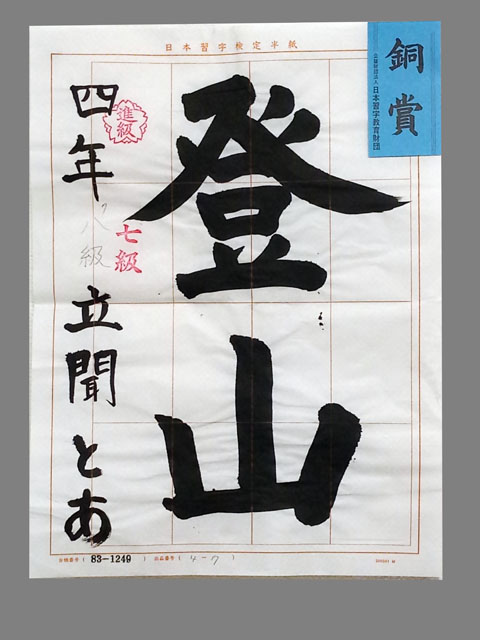 日本習字検定半紙
銅賞
公益財団法人 日本習字教育財団
登山
進級
七級
四年
八級
立聞とあ
会場番号 ( 83-1249 ) 出品番号 ( 4-7 )